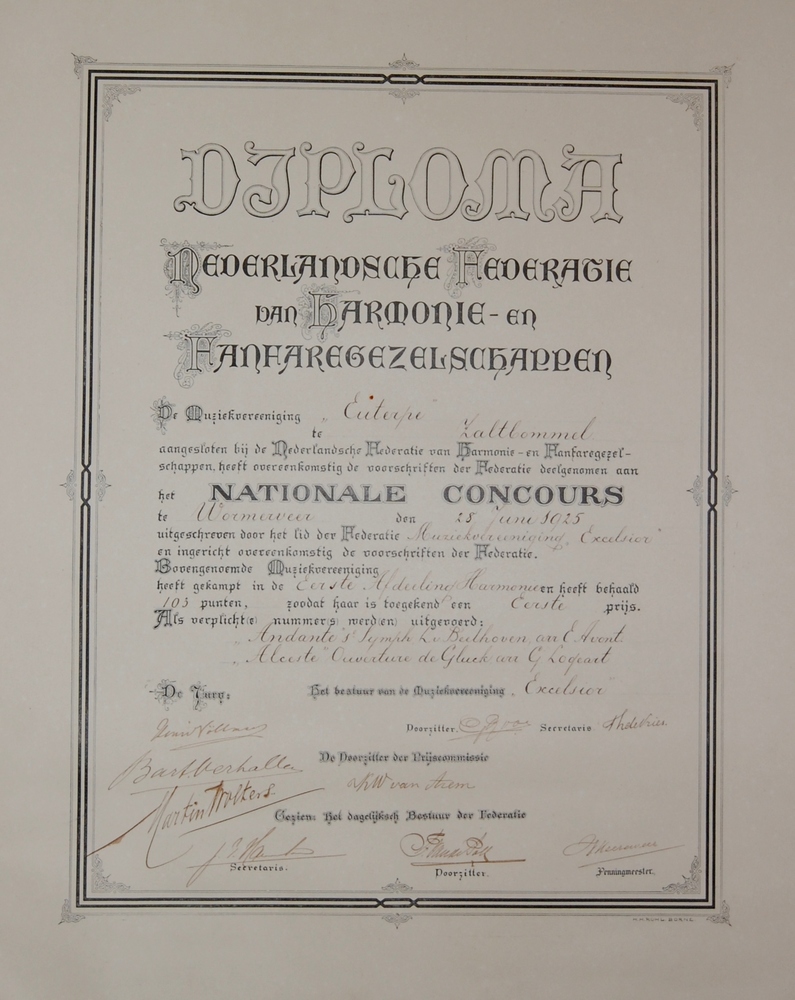 DIPLOMA
NEDERLANDSCHE FEDERATIE
VAN HARMONIE- EN
FANFAREGEZELSCHAPPEN
De Muziekvereeniging „Euterpe”
te Zaltbommel
aangesloten bij de Nederlandsche Federatie van Harmonie-en Fanfaregezel-
schappen, heeft overeenkomstig de voorschriften der Federatie deelgenomen aan
het NATIONALE CONCOURS
te Wormerveer den 28 Juni 1925
uitgeschreven door het lid der Federatie Muziekvereeniging „Excelsior”
en ingericht overeenkomstig de voorschriften der Federatie.
Bovengenoemde Muziekvereeniging
heeft gekampt in de Eerste Afdeeling Harmonie en heeft behaald
103 punten, zoodat haar is toegekend een Eerste prijs.
Als verplicht(e) nummer(s) werd(en) uitgevoerd:
„Andante” Symph L. v. Beethoven, arr E. Avont.
„Alceste” Ouverture de Gluck arr G
De Jury: Het bestuur van de Muziekvereeniging „Excelsior”
Voorzitter. Secretaris
Bart Verhallen De Voorzitter der Prijscommissie
Martin Wolters van
Gezien: Het dagelijksch Bestuur der Federatie
Secretaris. Voorzitter. Penningmeester.